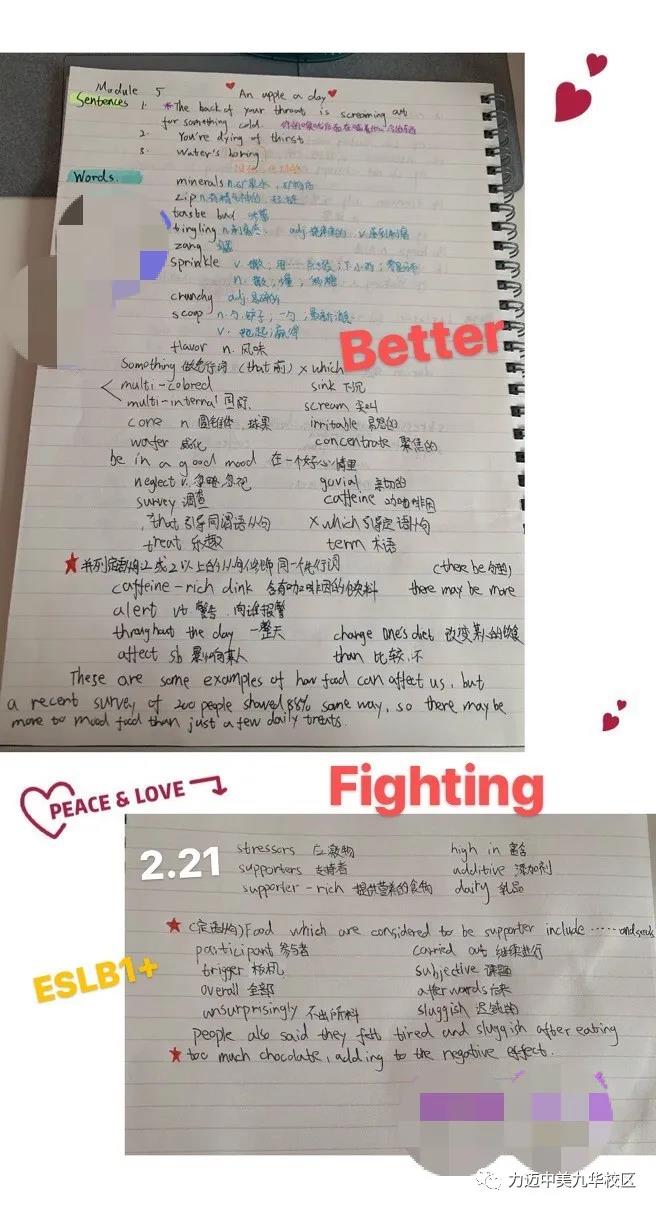 Module 5 An apple a day
Sentences 1. *The back of your throat is screaming out
for something cold.
2. You're dying of thirst
3. Water's boring
Words.
minerals n.矿泉水,矿物质
zip n.
taste bud 味蕾
tingling n. adj. v.
zang
sprinkle v. 撒; 下小雨;
n. 撒;
crunchy adj. 易碎的
scoop n. 勺 一勺
v.
flavor n. 风味
Something 做先行词 (that 前) × which
multi-colored sink 下沉
multi-internal scream 尖叫
cone n 圆锥体 球果 irritable 易怒的
wafer 威化 concentrate 聚焦的
be in a good mood 在一个好心情里
neglect v. 忽略 忽视 govial 亲切的
survey 调查 caffeine 咖啡因
, that 引导同谓语从句 × which 引导定语从句
treat 乐趣 term 术语
(there be 句型)
caffeine-rich dink 含有咖啡因的饮料 there may be more
alert vt. 警告 向谁报警
throughout the day 一整天 change one's diet 改变某人的饮食
affect sb 影响某人 than 比较,不
These are some examples of how food can affect us, but
a recent survey of 200 people showed 88% same way, so there may be
more to mood food than just a few daily treats.
Better
PEACE & LOVE
Fighting
2.21
stressors 应激物 high in 富含
supporters 支持者 additive 添加剂
supporter-rich 提供营养的食物 dairy 乳品
(定语从句) Food which are considered to be supporter include ······ and seeds
participant 参与者 carried out 继续进行
trigger 扳机 subjective 课题
overall 全部 afterwards 后来
unsurprisingly 不出所料 sluggish 迟钝的
people also said they felt tired and sluggish after eating
too much chocolate, adding to the negative effect.
ESLB1+
力迈中美九华校区